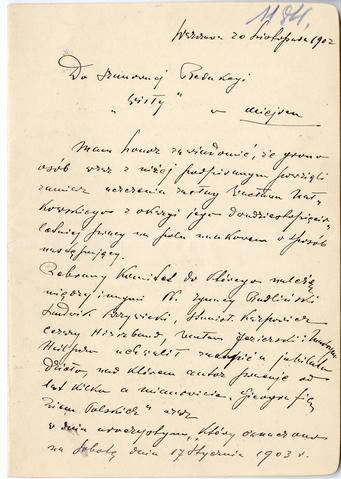 1184.
Warszawa 20 Listopada 1902
Do Szanownej Redakcyi
"Wisły" w miejscu
Mam honor zawiadomić, że grono
osób wraz z niżej podpisanym powzięli
zamiar uczczenia zasług Wacława Nał-
kowskiego z okazyi jego dwudziestopięcio-
letniej pracy na polu naukowem w sposób
następujący.
Zebrany Komitet do którego należą
między innymi pp. Ignacy Radliński
Ludwik Krzywicki, Stanisł. Karpowicz
Cezary Hiszband, Jezierski i
Heilpern uchwalił jubilata
dzieło, nad którem autor pracuje od
lat kilku a mianowicie "Geografię
Ziem Polskich" oraz
w dniu uroczystym, który oznaczono
na Sobotę dnia 17 Stycznia 1903 r.